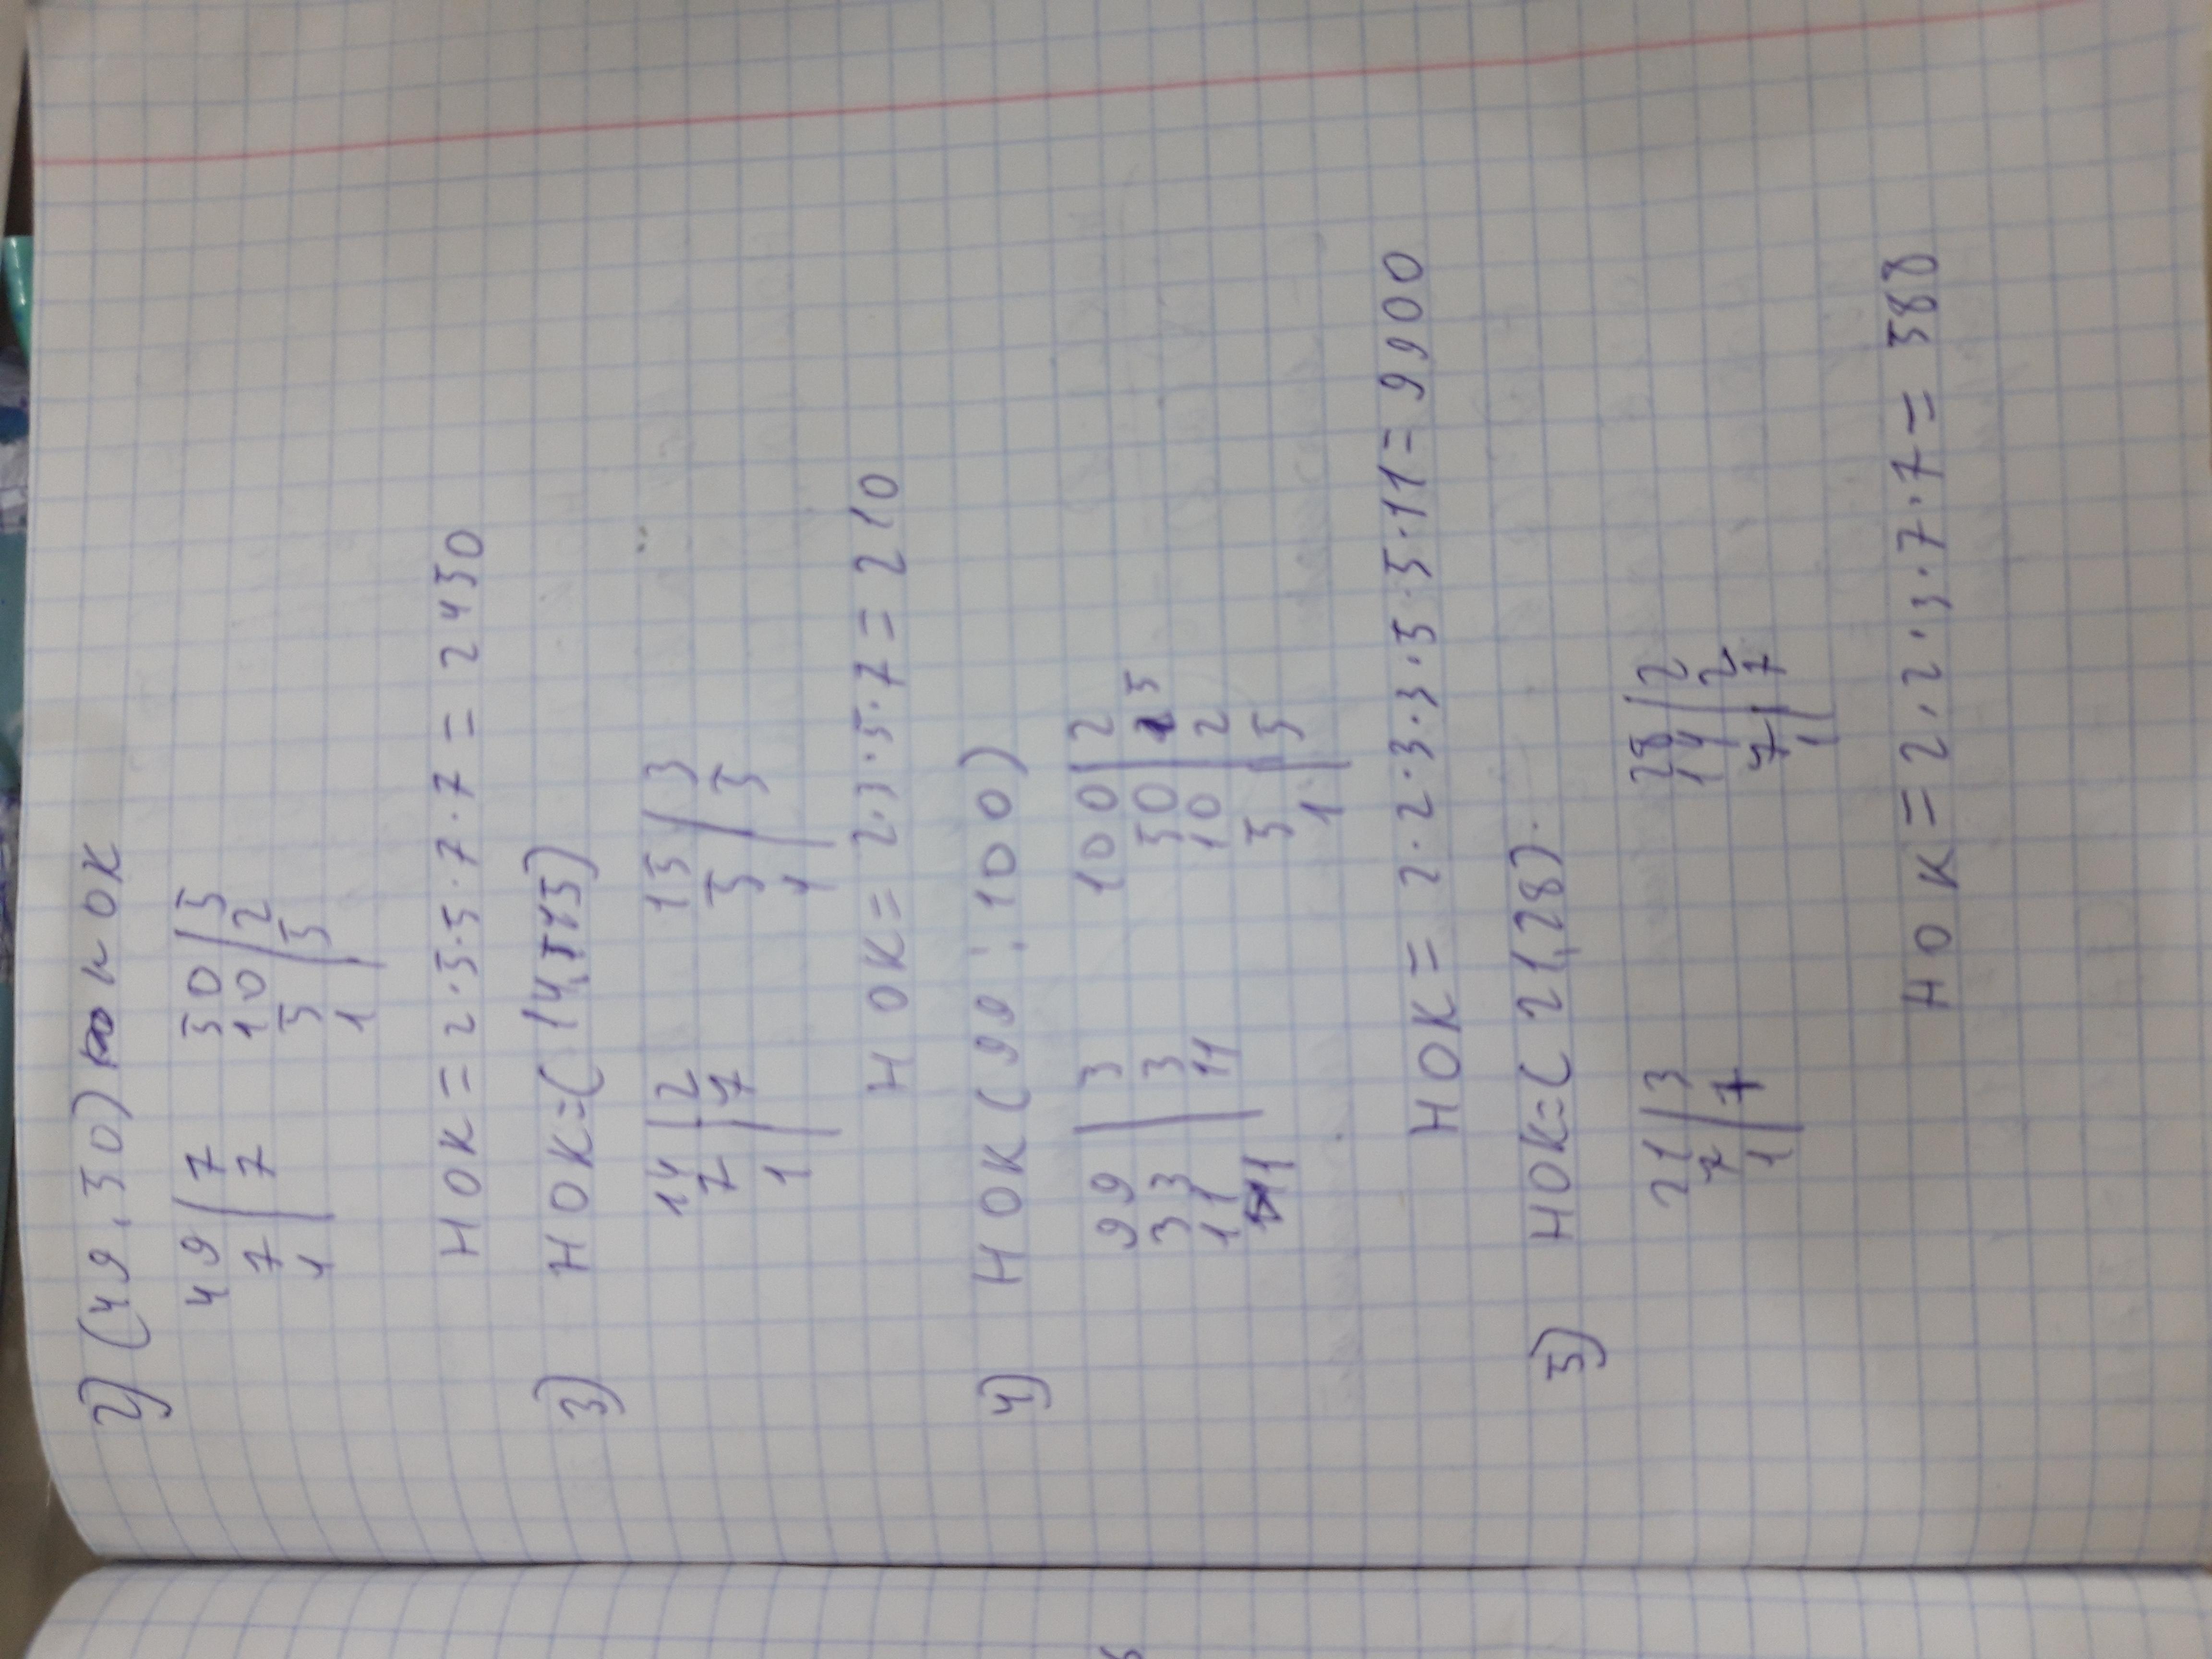 2) (49, 50) НОК
49 | 7   50 | 5
7 | 7   10 | 2
1   5 | 5
1
НОК = 2·5·5·7·7 = 2450
3) НОК=(14, 15)
14 | 2   15 | 3
7 | 7   5 | 5
1   1
НОК = 2·3·5·7 = 210
4) НОК (99 : 100)
99 | 3   100 | 2
33 | 3   50 | 5
11 | 11   10 | 2
1   5 | 5
1
НОК = 2·2·3·3·5·5·11 = 9900
5) НОК=(21,28).
21 | 3   28 | 2
7 | 7   14 | 2
1   7 | 7
1
НОК = 2·2·3·7·7 = 588